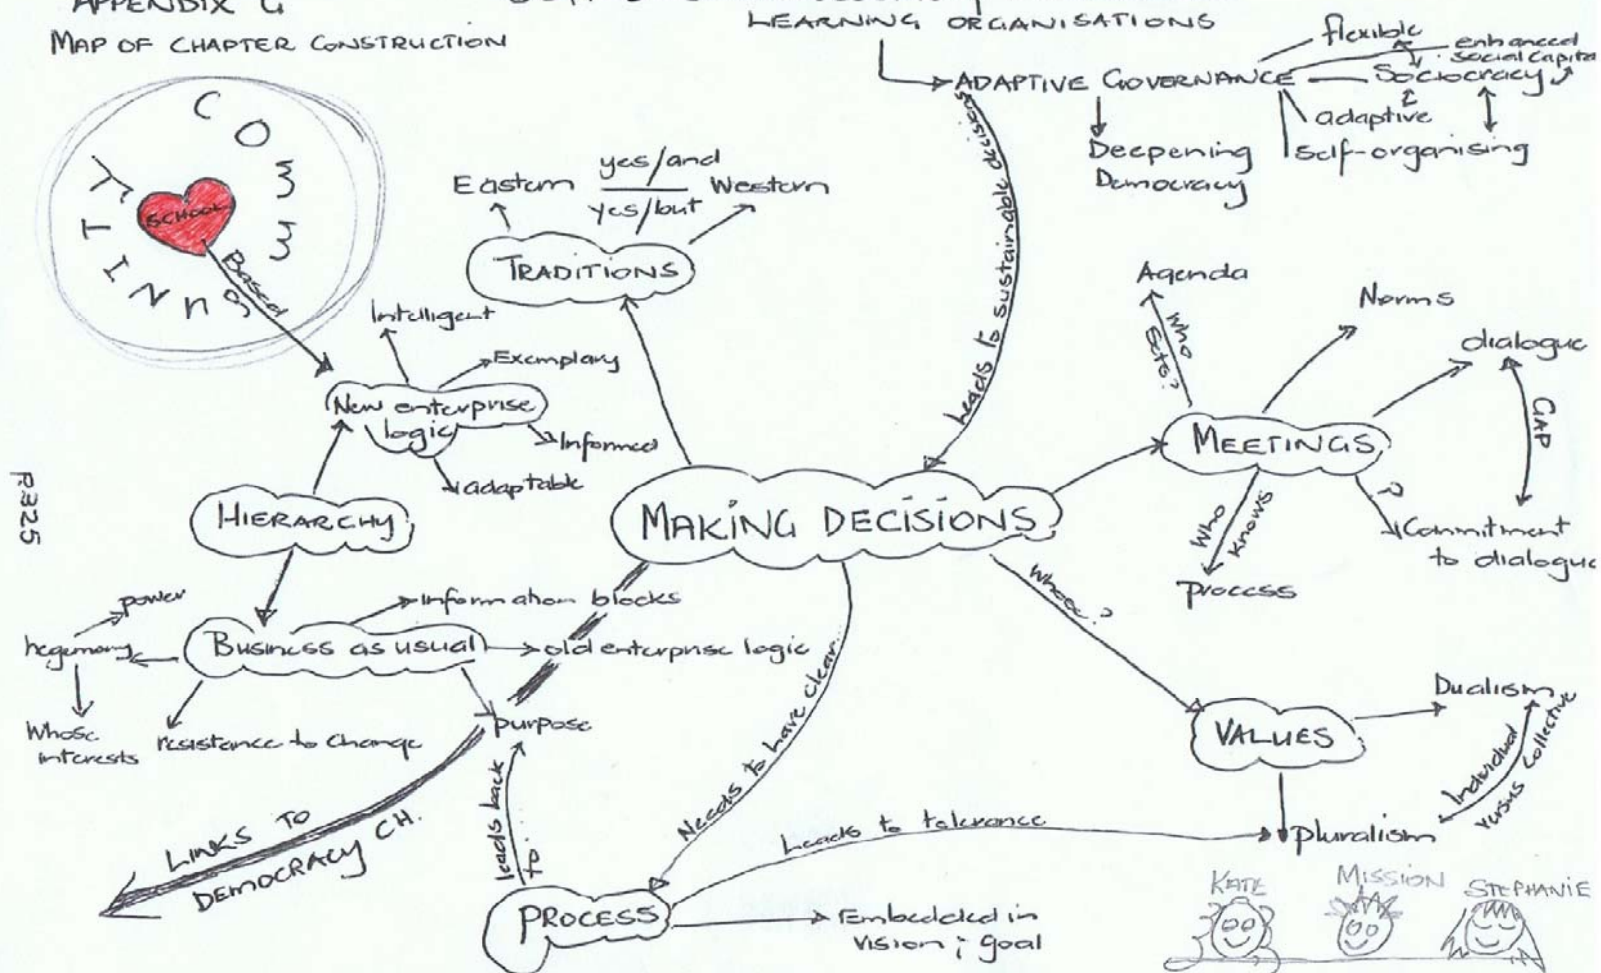 APPENDIX G
MAP OF CHAPTER CONSTRUCTION
LEARNING ORGANISATIONS
ADAPTIVE GOVERNANCE
flexible
enhanced
social capital
Sociocracy
adaptive
self-organising
Deepening
Democracy
Leads to sustainable decisions
COMMUNITY
SCHOOL
Based
Eastern
yes/and
yes/but
Western
TRADITIONS
Intelligent
Exemplary
New enterprise
logic
Informed
adaptable
HIERARCHY
P325
MAKING DECISIONS
Agenda
Who
sets?
Norms
dialogue
GAP
MEETINGS
?
Commitment
to dialogue
Who
knows
process
power
hegemony
Whose
interests
Business as usual
information blocks
old enterprise logic
resistance to change
purpose
LINKS TO
DEMOCRACY CH.
leads back
to...
Needs to have clear...
Whose?
VALUES
Dualism
Individual
versus collective
pluralism
Leads to tolerance
PROCESS
Embedded in
vision ; goal
KATE
MISSION
STEPHANIE